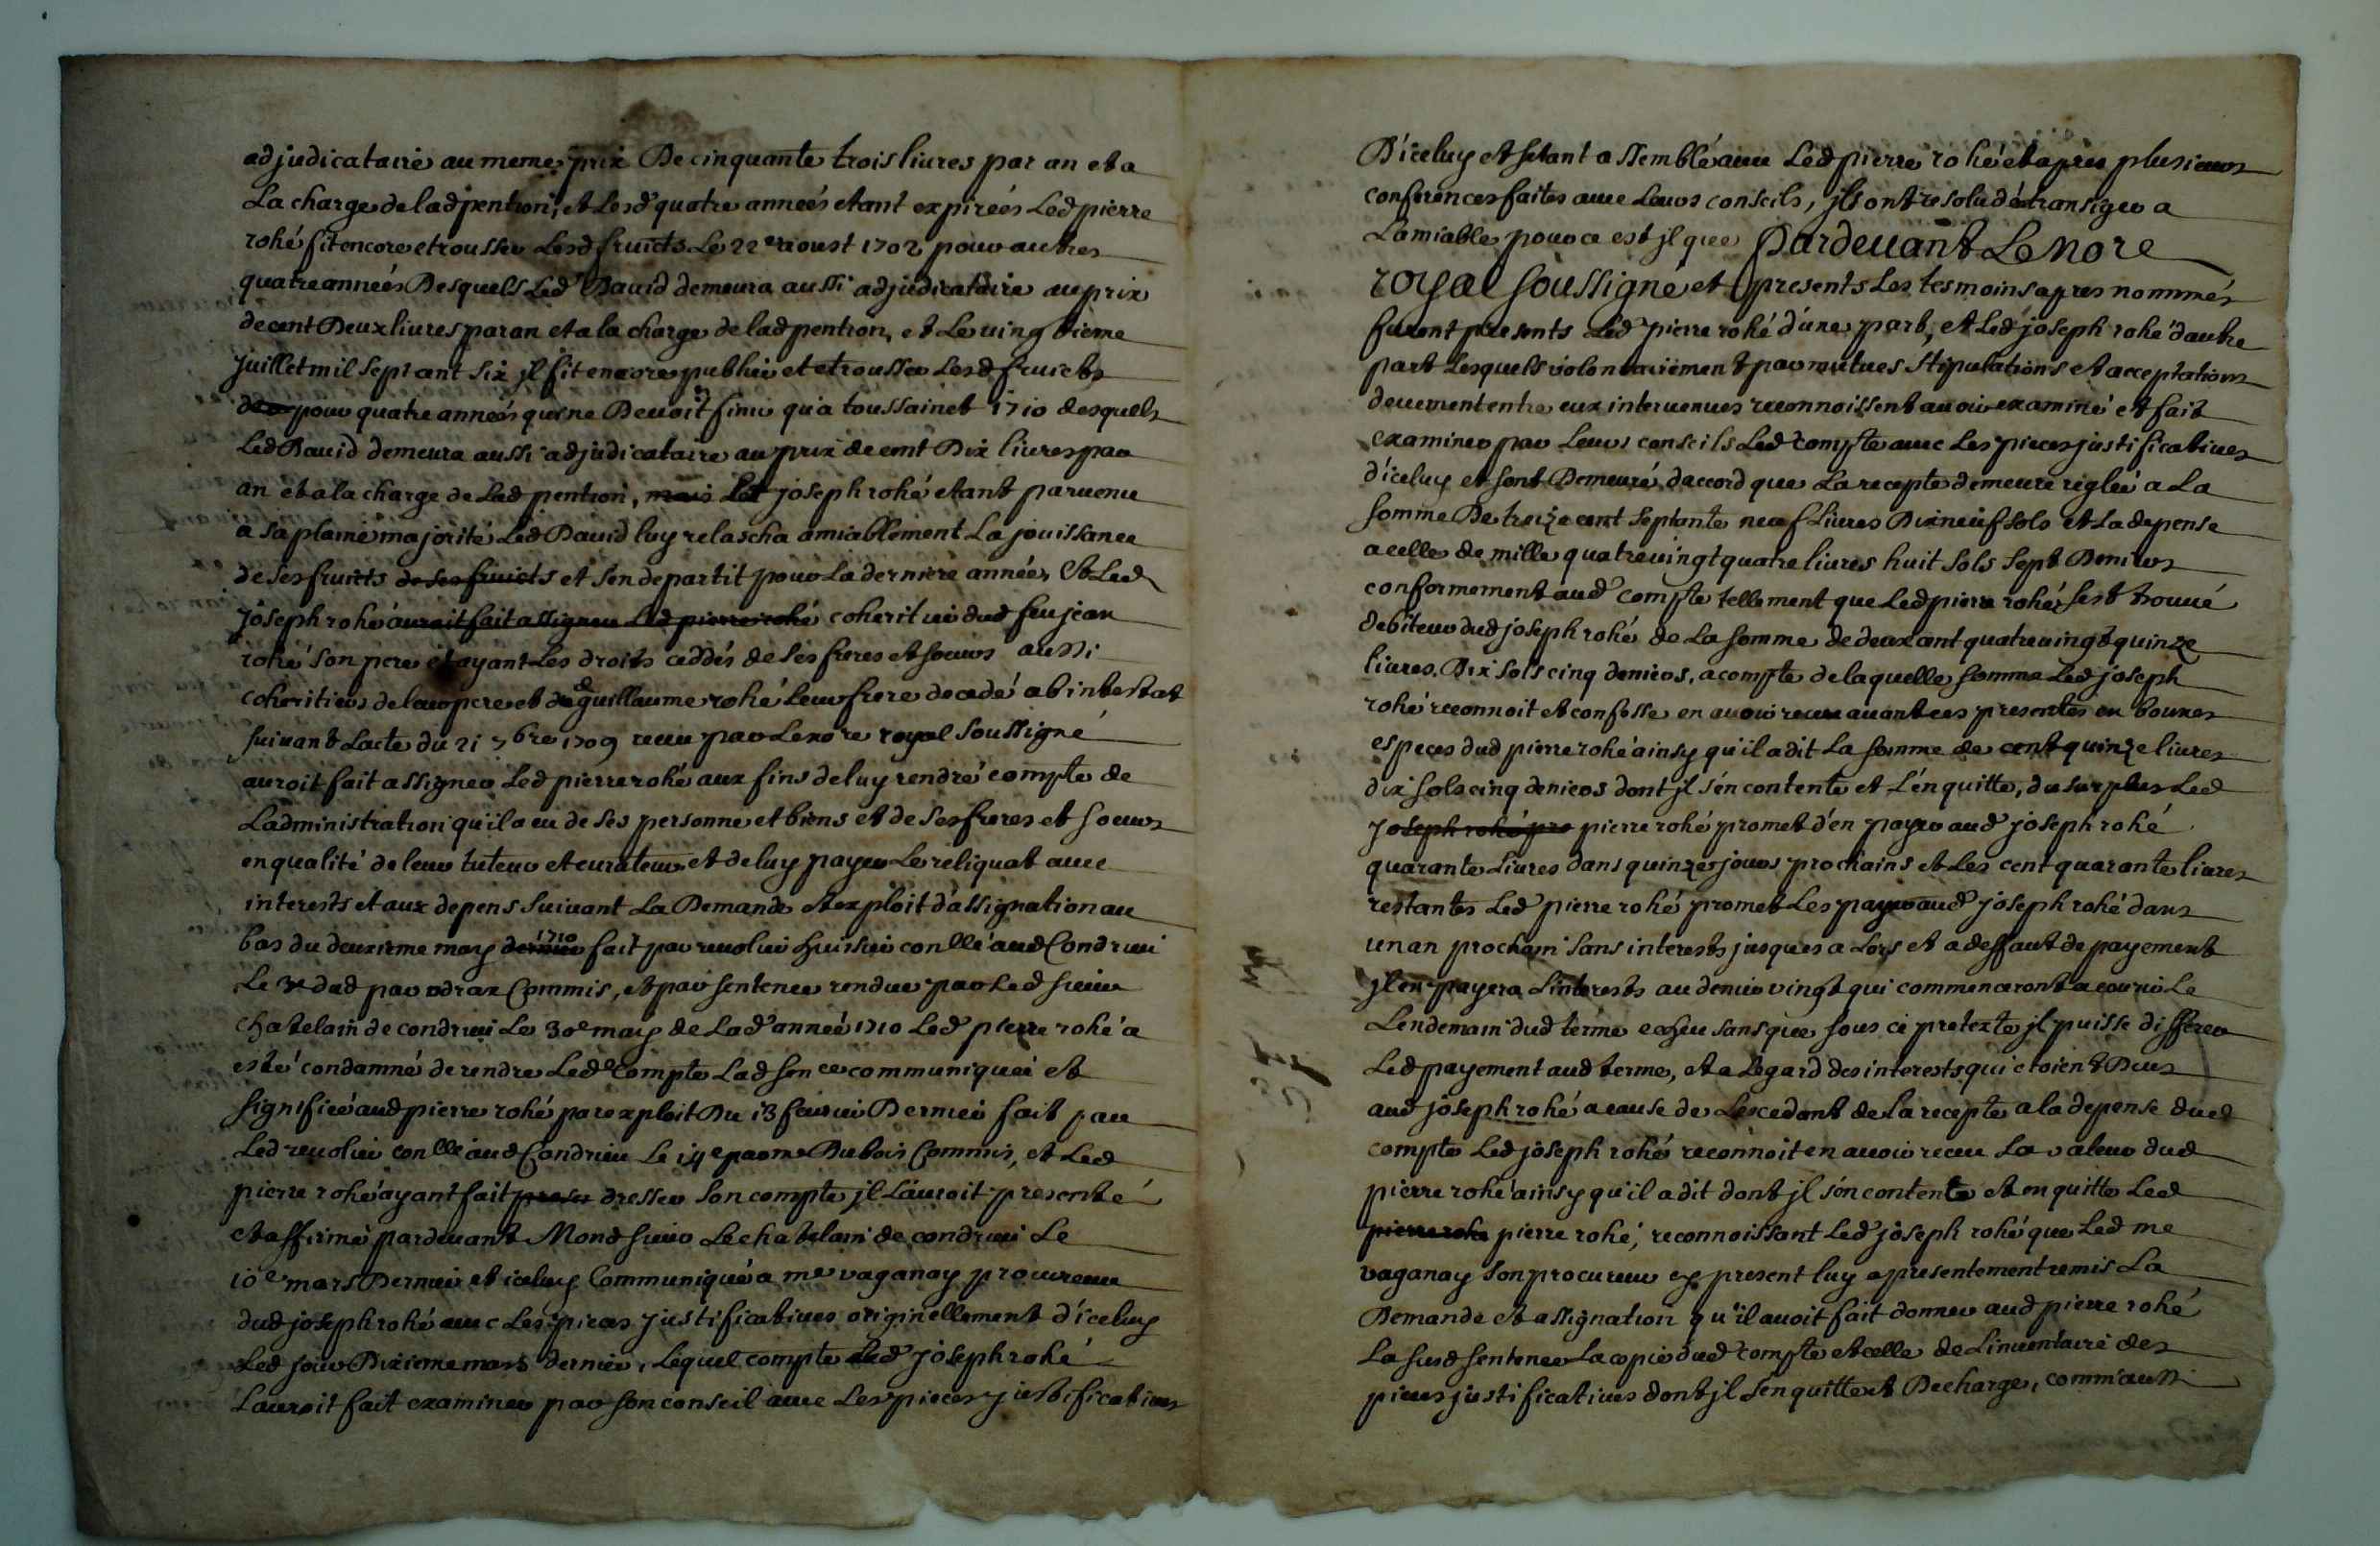 adjudicataire au meme prix De cinquante trois livres par an et a
La charge de lad pention, et Lesd quatre années etant expirées Led pierre
rohé fit encore etrousser Lesd fruicts Le 22e aoust 1702 pour autres
quatre années Desquels Led David demeura aussi adjudicataire au prix
de cent Deux livres par an et a la charge de lad pention, et Le vingtieme
Juillet mil sept cent six jl fit encore publier et etrousser Lesd fruicts
pour quatre années qui ne Devoit finir qu'a toussainct 1710 desquels
Led David demeura aussi adjudicataire au prix de cent Dix livres par
an et a la charge de Lad pention, mais Led joseph rohé etant parvenu
a sa plaine majorité Led David luy relascha amiablement La jouissance
de ses fruicts de ses fruicts et s'en departit pour La derniere année, Et Led
Joseph rohé auroit fait assigner Led pierre rohé coheritier dud feu jean
rohé son pere et ayant Les droits ceddés de ses freres et soeurs aussi
coheritiers de leur pere et de guillaume rohé Leur frere decedé ab intestat
suivant Lacte du 21 7bre 1709 receu par Le nore royal soussigné
auroit fait assigner Led pierre rohé aux fins de luy rendre compte de
Ladministration qu'il a eu de ses personne et biens et de ses freres et soeurs
en qualité de leur tuteur et curateur et de luy payer Le reliquat avec
interests et aux depens suivant La Demande et exploit d'assignation au
bas du deuxieme may dernier 1710 fait par revolier huissier conllé aud Condrieu
Le 3e dud par odrax Commis, et par sentence rendue par Led sieur
chatelain de condrieu Le 30e may de Lad année 1710 Led pierre rohé a
esté condamné de rendre Led compte Lad sence communiquée et
signifiée aud pierre rohé par exploit Du 13 fevrier Dernier fait par
Led revolier conllé aud Condrieu Le 14e par me Dubois Commis, et Led
pierre rohé ayant fait dresser son compte jl L'auroit presenté
et affirmé pardevant Mond sieur Le chatelain de condrieu Le
10e mars Dernier et iceluy Communiqué a me vaganay procureur
dud joseph rohé avec Les pieces justificatives originellement d'iceluy
Led jour Dixieme mars dernier, Lequel compte Led joseph rohé
Lauroit fait examiner par son conseil avec Les pieces justificatives
D'iceluy et s'etant assemblé avec Led pierre rohé et apres plusieurs
conferences faites avec Leurs conseils, jls ont resolu de transiger a
Lamiable, pour ce est jl que Pardevant Le Nore
royal soussigné et presents Les tesmoins apres nommés
furent presents Led pierre rohé d'une part, et Led joseph rohé d'autre
part Lesquels volontairement par mutues stipulations et acceptations
deuement entre eux intervenues reconnoissent avoir examiné et fait
examiner par Leurs conseils Led compte avec Les pieces justificatives
d'iceluy et sont Demeuré daccord que La recepte demeure reglée a La
somme De treize cent septante neuf Livres Dixneuf sols et La depense
a celle de mille quatre vingt quatre livres huit sols sept Deniers
conformement aud compte tellement que Led pierre rohé s'est trouvé
debiteur dud joseph rohé de La somme de deux cent quatre vingt quinze
livres Dix sols cinq deniers, a compte de laquelle somme Led joseph
rohé reconnoit et confesse en avoir receu avant ces presentes en bonnes
especes dud pierre rohé ainsy qu'il a dit La somme de cent quinze livres
dix sols cinq deniers dont jl s'en contente et L'en quitte, du surplus Led
Joseph rohé pro pierre rohé promet d'en payer aud joseph rohé
quarante Livres dans quinze jours prochains et Les cent quarante livres
restantes Led pierre rohé promet Les payer aud joseph rohé dans
un an prochain sans interests jusques a Lors et a deffaut de payement
jl en payera L'interests au denier vingt qui commenceront a courir Le
Lendemain dud terme escheu sans que sous ce pretexte jl puisse differer
Led payement aud terme, et a Legard des interests qui etoient Deus
aud joseph rohé a cause de Lexcedant de La recepte a la depense dud
compte Led joseph rohé reconnoit en avoir receu La valeur dud
pierre rohé ainsy qu'il a dit dont jl s'en contente et en quitte Led
pierre rohe pierre rohé, reconnoissant Led joseph rohé que Led me
vaganay son procureur cy present luy a presentement remis La
Demande et assignation qu'il avoit fait donner aud pierre rohé
La susd sentence La copie dud compte et celle de Linventaire des
pieces justificatives dont jl s'en quitte et Decharge, comm'aussi